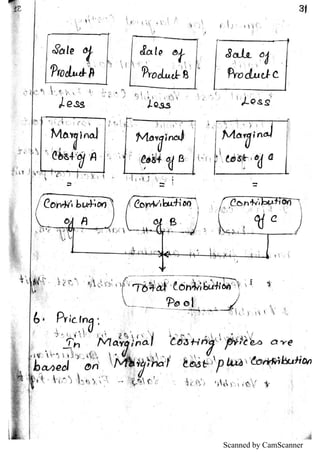 31
Sale of
Product A
Sale of
Product B
Sale of
Product C
Less
Less
Less
Marginal
Cost of A
Marginal
Cost of B
Marginal
Cost of C
=
=
=
Contribution
of A
Contribution
of B
Contribution
of C
Total Contribution
Pool
6. Pricing:
In Marginal Costing prices are
based on Marginal cost plus Contribution
Scanned by CamScanner